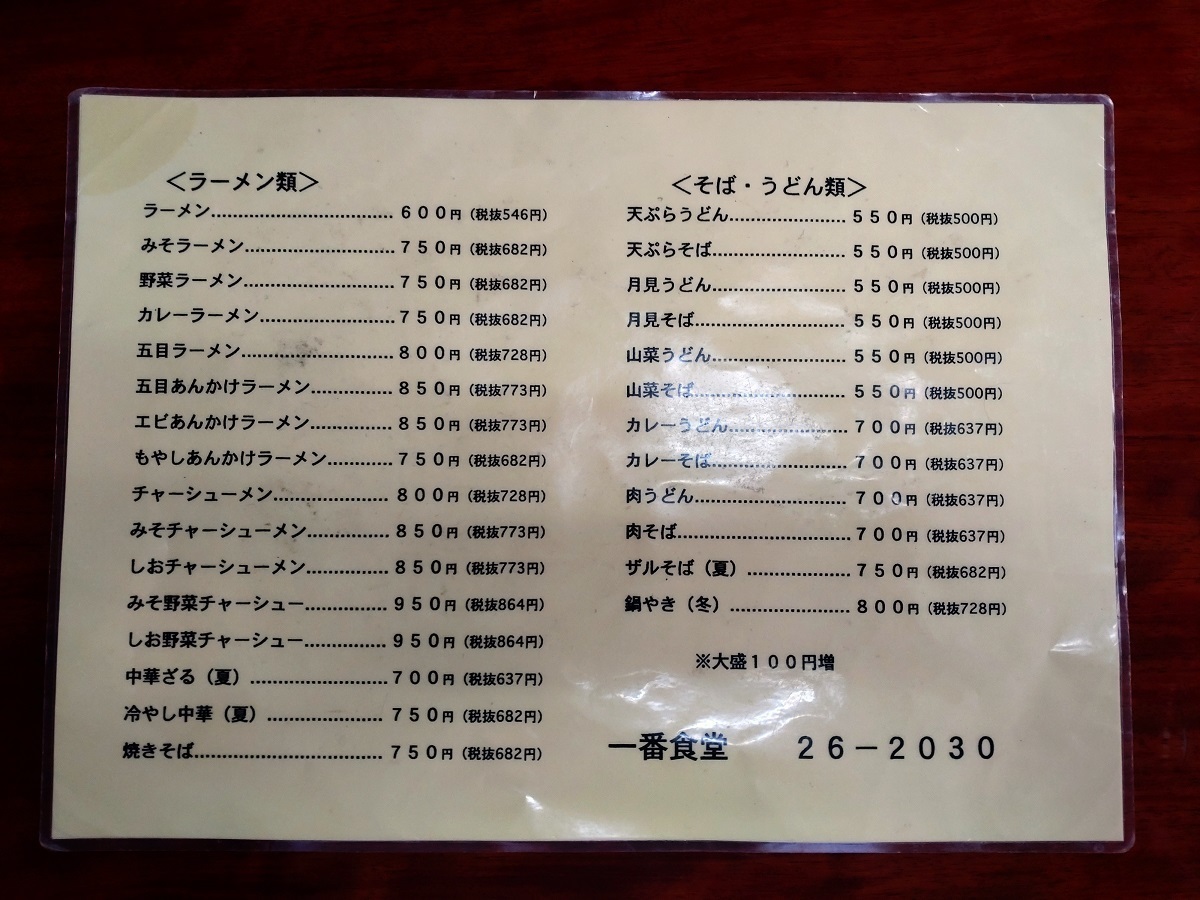 ＜ラーメン類＞
ラーメン.............................. ６００円（税抜546円）
みそラーメン......................... ７５０円（税抜682円）
野菜ラーメン......................... ７５０円（税抜682円）
カレーラーメン....................... ７５０円（税抜682円）
五目ラーメン......................... ８００円（税抜728円）
五目あんかけラーメン.............. ８５０円（税抜773円）
エビあんかけラーメン.............. ８５０円（税抜773円）
もやしあんかけラーメン........... ７５０円（税抜682円）
チャーシューメン.................... ８００円（税抜728円）
みそチャーシューメン.............. ８５０円（税抜773円）
しおチャーシューメン.............. ８５０円（税抜773円）
みそ野菜チャーシュー.............. ９５０円（税抜864円）
しお野菜チャーシュー.............. ９５０円（税抜864円）
中華ざる（夏）........................ ７００円（税抜637円）
冷やし中華（夏）.................... ７５０円（税抜682円）
焼きそば................................ ７５０円（税抜682円）
＜そば・うどん類＞
天ぷらうどん.................... ５５０円（税抜500円）
天ぷらそば....................... ５５０円（税抜500円）
月見うどん....................... ５５０円（税抜500円）
月見そば.......................... ５５０円（税抜500円）
山菜うどん....................... ５５０円（税抜500円）
山菜そば.......................... ５５０円（税抜500円）
カレーうどん.................... ７００円（税抜637円）
カレーそば....................... ７００円（税抜637円）
肉うどん.......................... ７００円（税抜637円）
肉そば............................. ７００円（税抜637円）
ザルそば（夏）.................. ７５０円（税抜682円）
鍋やき（冬）..................... ８００円（税抜728円）
※大盛１００円増
一番食堂　２６－２０３０